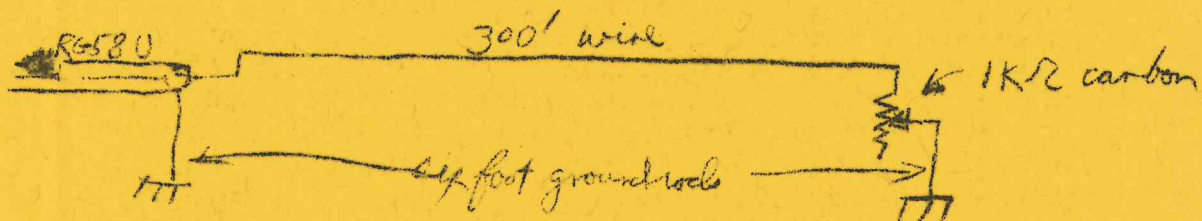 RG58U
300' wire
1KΩ carbon
six foot groundrods